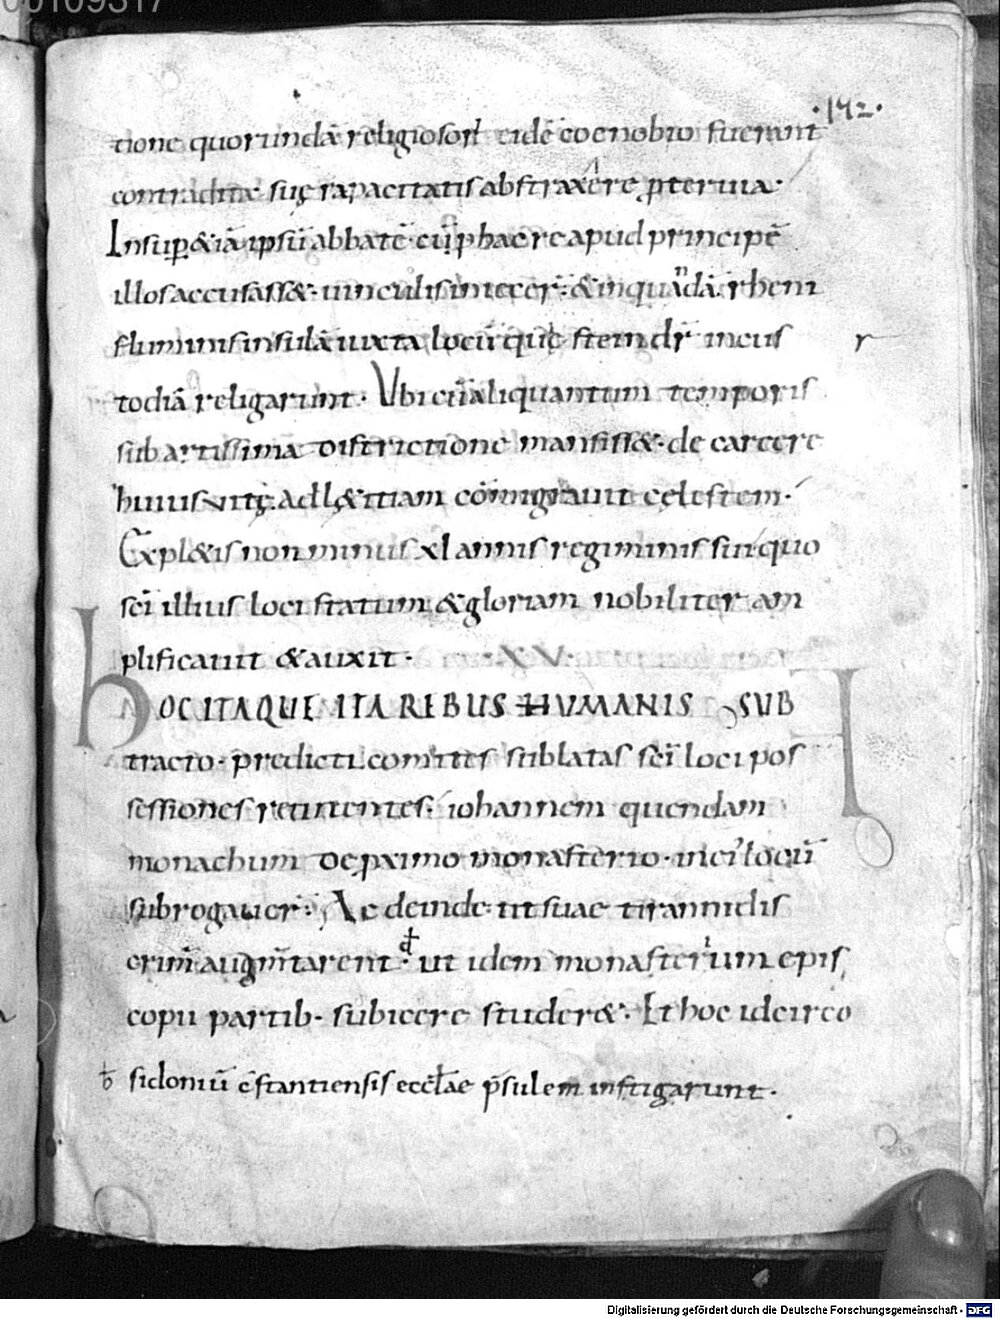 00109317
·142·
tione quorundā religiosoꝝ eidē coenobio fuerunt
contradita· suę rapacitatis abstraxere ꝓteruia·
Insup & iā ipsū abbatē cū ephae re apud principē
illos accusass&· uinculis iniecer̄· & in quadā rheni
fluminis insulā iuxta locū quę stein dr̄ incus
r
todiā religarunt· Vbi cū aliquantum temporis
sub artissima districtione mansiss&· de carcere
huius uitę· ad lętitiam cōmigrauit celestem·
Expl&is non minus xl annis regiminis sui quo
sc̄i illius loci statum & gloriam nobiliter am
plificauit & auxit· ·XV·
HOC ITAQUE ITA REBUS HUMANIS SUB
tracto· predicti comites sublatas sc̄i loci pos
sessiones retinentes· iohannem quendam
monachum de ꝓximo monasterio· in ei' locū
subrogauer̄· Ac deinde ut suae tirannidis
crim̄ augm̄tarent· ut idem monasterium epis
copii partib· subicere studer&· Et hoc idcirco
sidoniū c̄stantiensis eccl̄ae p̄sulem instigarunt·
Digitalisierung gefördert durch die Deutsche Forschungsgemeinschaft - DFG